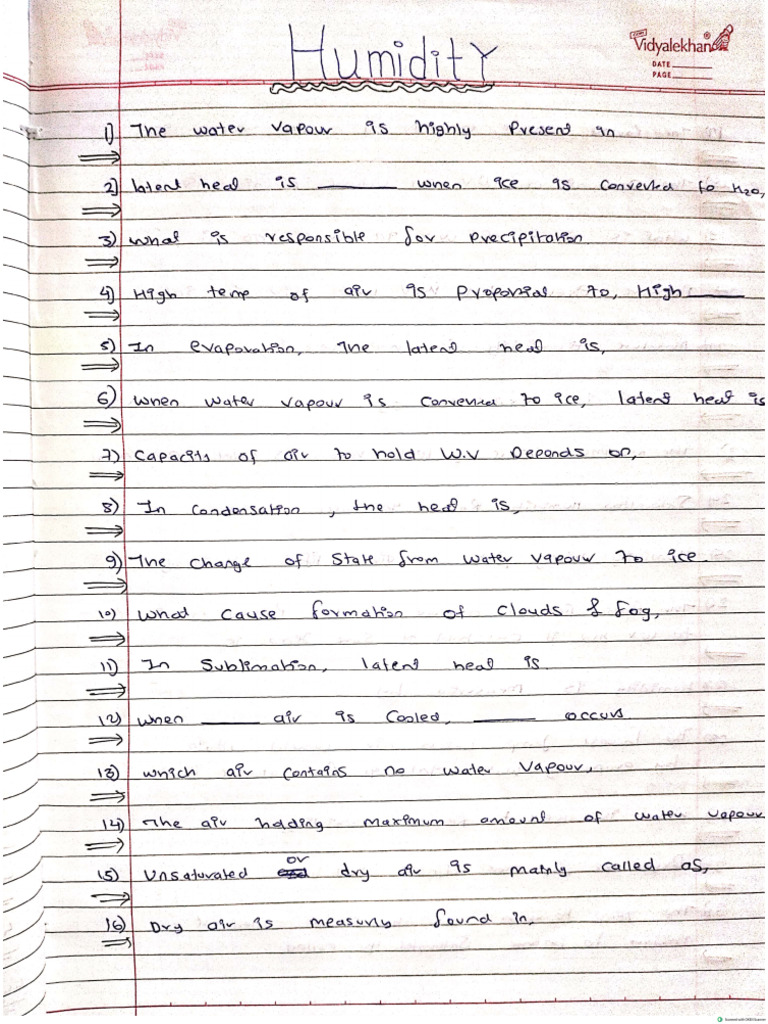 Humidity
Vidyalekhan
DATE
PAGE
1) The water vapour is highly Present in
2) latent heat is ______ when ice is converted to H2O,
3) What is responsible for precipitation
4) High temp of air is Proportial to, High ______
5) In evaporation, The latent heat is,
6) When water vapour is converted to ice, latent heat is
7) Capacity of air to hold W.V Depends on,
8) In Condensation, the heat is,
9) The Change of State from water vapour to ice
10) What cause formation of clouds & fog,
11) In Sublimation, latent heat is
12) When ______ air is Cooled, ______ occurs
13) Which air contains no water vapour,
14) The air holding maximum amount of water vapour
15) Unsaturated or dry air is mainly called as,
16) Dry air is found in,